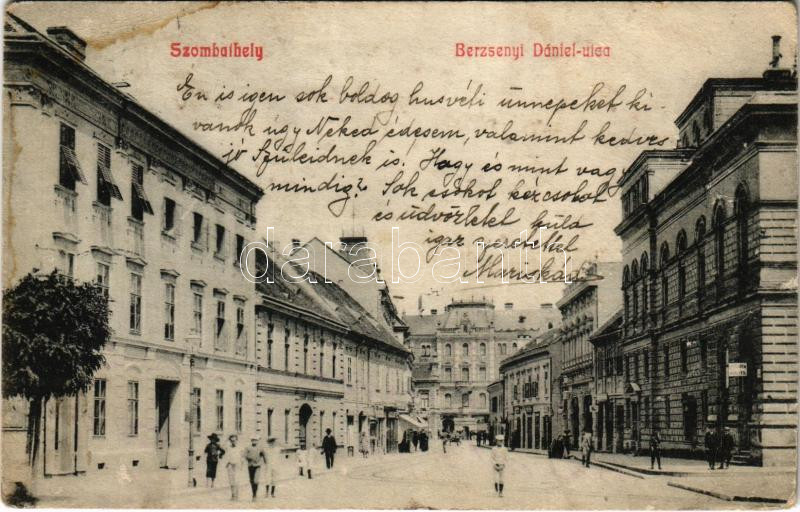 Szombathely
Berzsenyi Dániel-utca
Én is igen sok boldog húsvéti ünnepeket kí-
vánok úgy Neked édesem, valamint kedves
jó Szüleidnek is. Hogy és mint vagy
mindig? Sok csókot kézcsókot
és üdvözletet küld
igaz szeretettel
Mariskád
darabanth